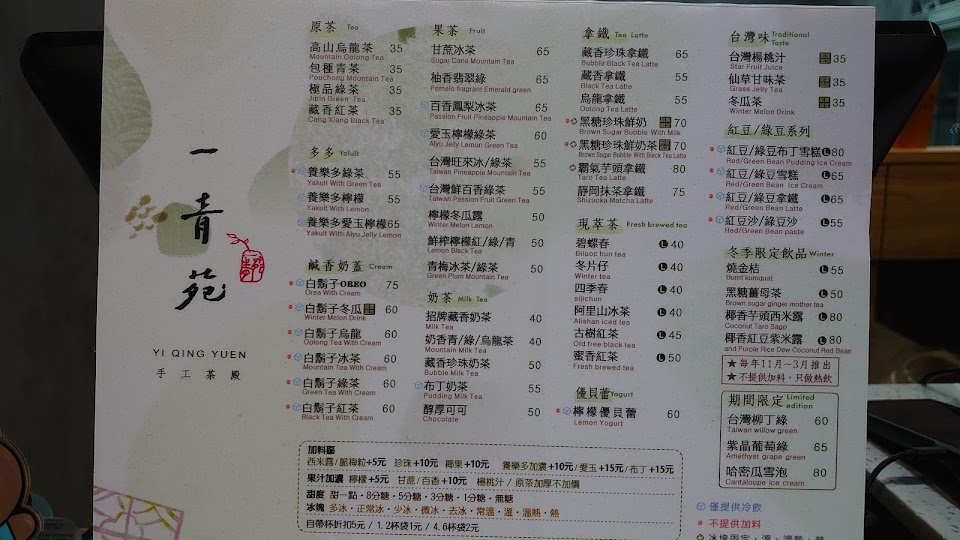 一青苑
YI QING YUEN
手工茶殿
原茶 Tea
高山烏龍茶 35
Mountain Oolong Tea
包種青茶 35
Pouchong Mountain Tea
極品綠茶 35
Jipin Green Tea
藏香紅茶 35
Cang Xiang Black Tea
多多 Yakult
養樂多綠茶 55
Yakult With Green Tea
養樂多檸檬 55
Yakult With Lemon
養樂多愛玉檸檬 65
Yakult With Aiyu Jelly Lemon
鹹香奶蓋 Cream
白鬍子OREO 75
Oreo With Cream
白鬍子冬瓜 60
Winter Melon Drink
白鬍子烏龍 60
Oolong Tea With Cream
白鬍子冰茶 60
Mountain Tea With Cream
白鬍子綠茶 60
Green Tea With Cream
白鬍子紅茶 60
Black Tea With Cream
果茶 Fruit
甘蔗冰茶 65
Sugar Cane Mountain Tea
柚香翡翠綠 65
Pomelo fragrant Emerald green
百香鳳梨冰茶 65
Passion Fruit Pineapple Mountain Tea
愛玉檸檬綠茶 60
Aiyu Jelly Lemon Green Tea
台灣旺來冰/綠茶 55
Taiwan Pineapple Mountain Tea
台灣鮮百香綠茶 55
Taiwan Passion Fruit Green Tea
檸檬冬瓜露 50
Winter Melon Lemon
鮮榨檸檬紅/綠/青 50
Lemon Black Tea
青梅冰茶/綠茶 50
Green Plum Mountain Tea
奶茶 Milk Tea
招牌藏香奶茶 40
Milk Tea
奶香青/綠/烏龍茶 40
Mountain Milk Tea
藏香珍珠奶茶 50
Bubble Milk Tea
布丁奶茶 55
Pudding Milk Tea
醇厚可可 50
Chocolate
拿鐵 Tea Latte
藏香珍珠拿鐵 65
Bubble Black Tea Latte
藏香拿鐵 55
Black Tea Latte
烏龍拿鐵 55
Oolong Tea Latte
黑糖珍珠鮮奶 70
Brown Sugar Bubble With Milk
黑糖珍珠鮮奶茶 70
Brown Sugar Bubble With Black Tea Latte
霸氣芋頭拿鐵 80
Taro Tea Latte
靜岡抹茶拿鐵 75
Shizuoka Matcha Latte
現萃茶 Fresh brewed tea
碧螺春 L 40
Biluoc hun tea
冬片仔 L 40
Winter tea
四季春 L 40
sijichun
阿里山冰茶 L 40
Alishan iced tea
古樹紅茶 L 45
Old tree black tea
蜜香紅茶 L 50
Fresh brewed tea
優貝蕾 Yogurt
檸檬優貝蕾 60
Lemon Yogurt
台灣味 Traditional Taste
台灣楊桃汁 35
Star Fruit Juice
仙草甘味茶 35
Grass Jelly Tea
冬瓜茶 35
Winter Melon Drink
紅豆/綠豆系列
紅豆/綠豆布丁雪糕 L 80
Red/Green Bean Pudding Ice Cream
紅豆/綠豆雪糕 L 65
Red/Green Bean Ice Cream
紅豆/綠豆拿鐵 L 65
Red/Green Bean Latte
紅豆沙/綠豆沙 L 55
Red/Green Bean paste
冬季限定飲品 Winter
燒金桔 L 55
Burnt kumquat
黑糖薑母茶 L 50
Brown sugar ginger mother tea
椰香芋頭西米露 L 80
Coconut Taro Sago
椰香紅豆紫米露 L 80
and Purple Rice Dew Coconut Red Bean
★每年11月~3月推出
★不提供加料,只做熱飲
期間限定 Limited edition
台灣柳丁綠 60
Taiwan willow green
紫晶葡萄綠 65
Amethyst grape green
哈密瓜雪泡 80
Cantaloupe Ice cream
加料區
西米露/脆梅粒+5元 珍珠+10元 椰果+10元 養樂多加濃+10元/愛玉+15元/布丁+15元
果汁加濃 檸檬+5元 甘蔗/百香+10元 楊桃汁/原茶加厚不加價
甜度 甜一點・8分糖・5分糖・3分糖・1分糖・無糖
冰塊 多冰・正常冰・少冰・微冰・去冰・常溫・溫・溫熱・熱
自帶杯折扣5元 / 1.2杯袋1元 / 4.6杯袋2元
僅提供冷飲
不提供加料